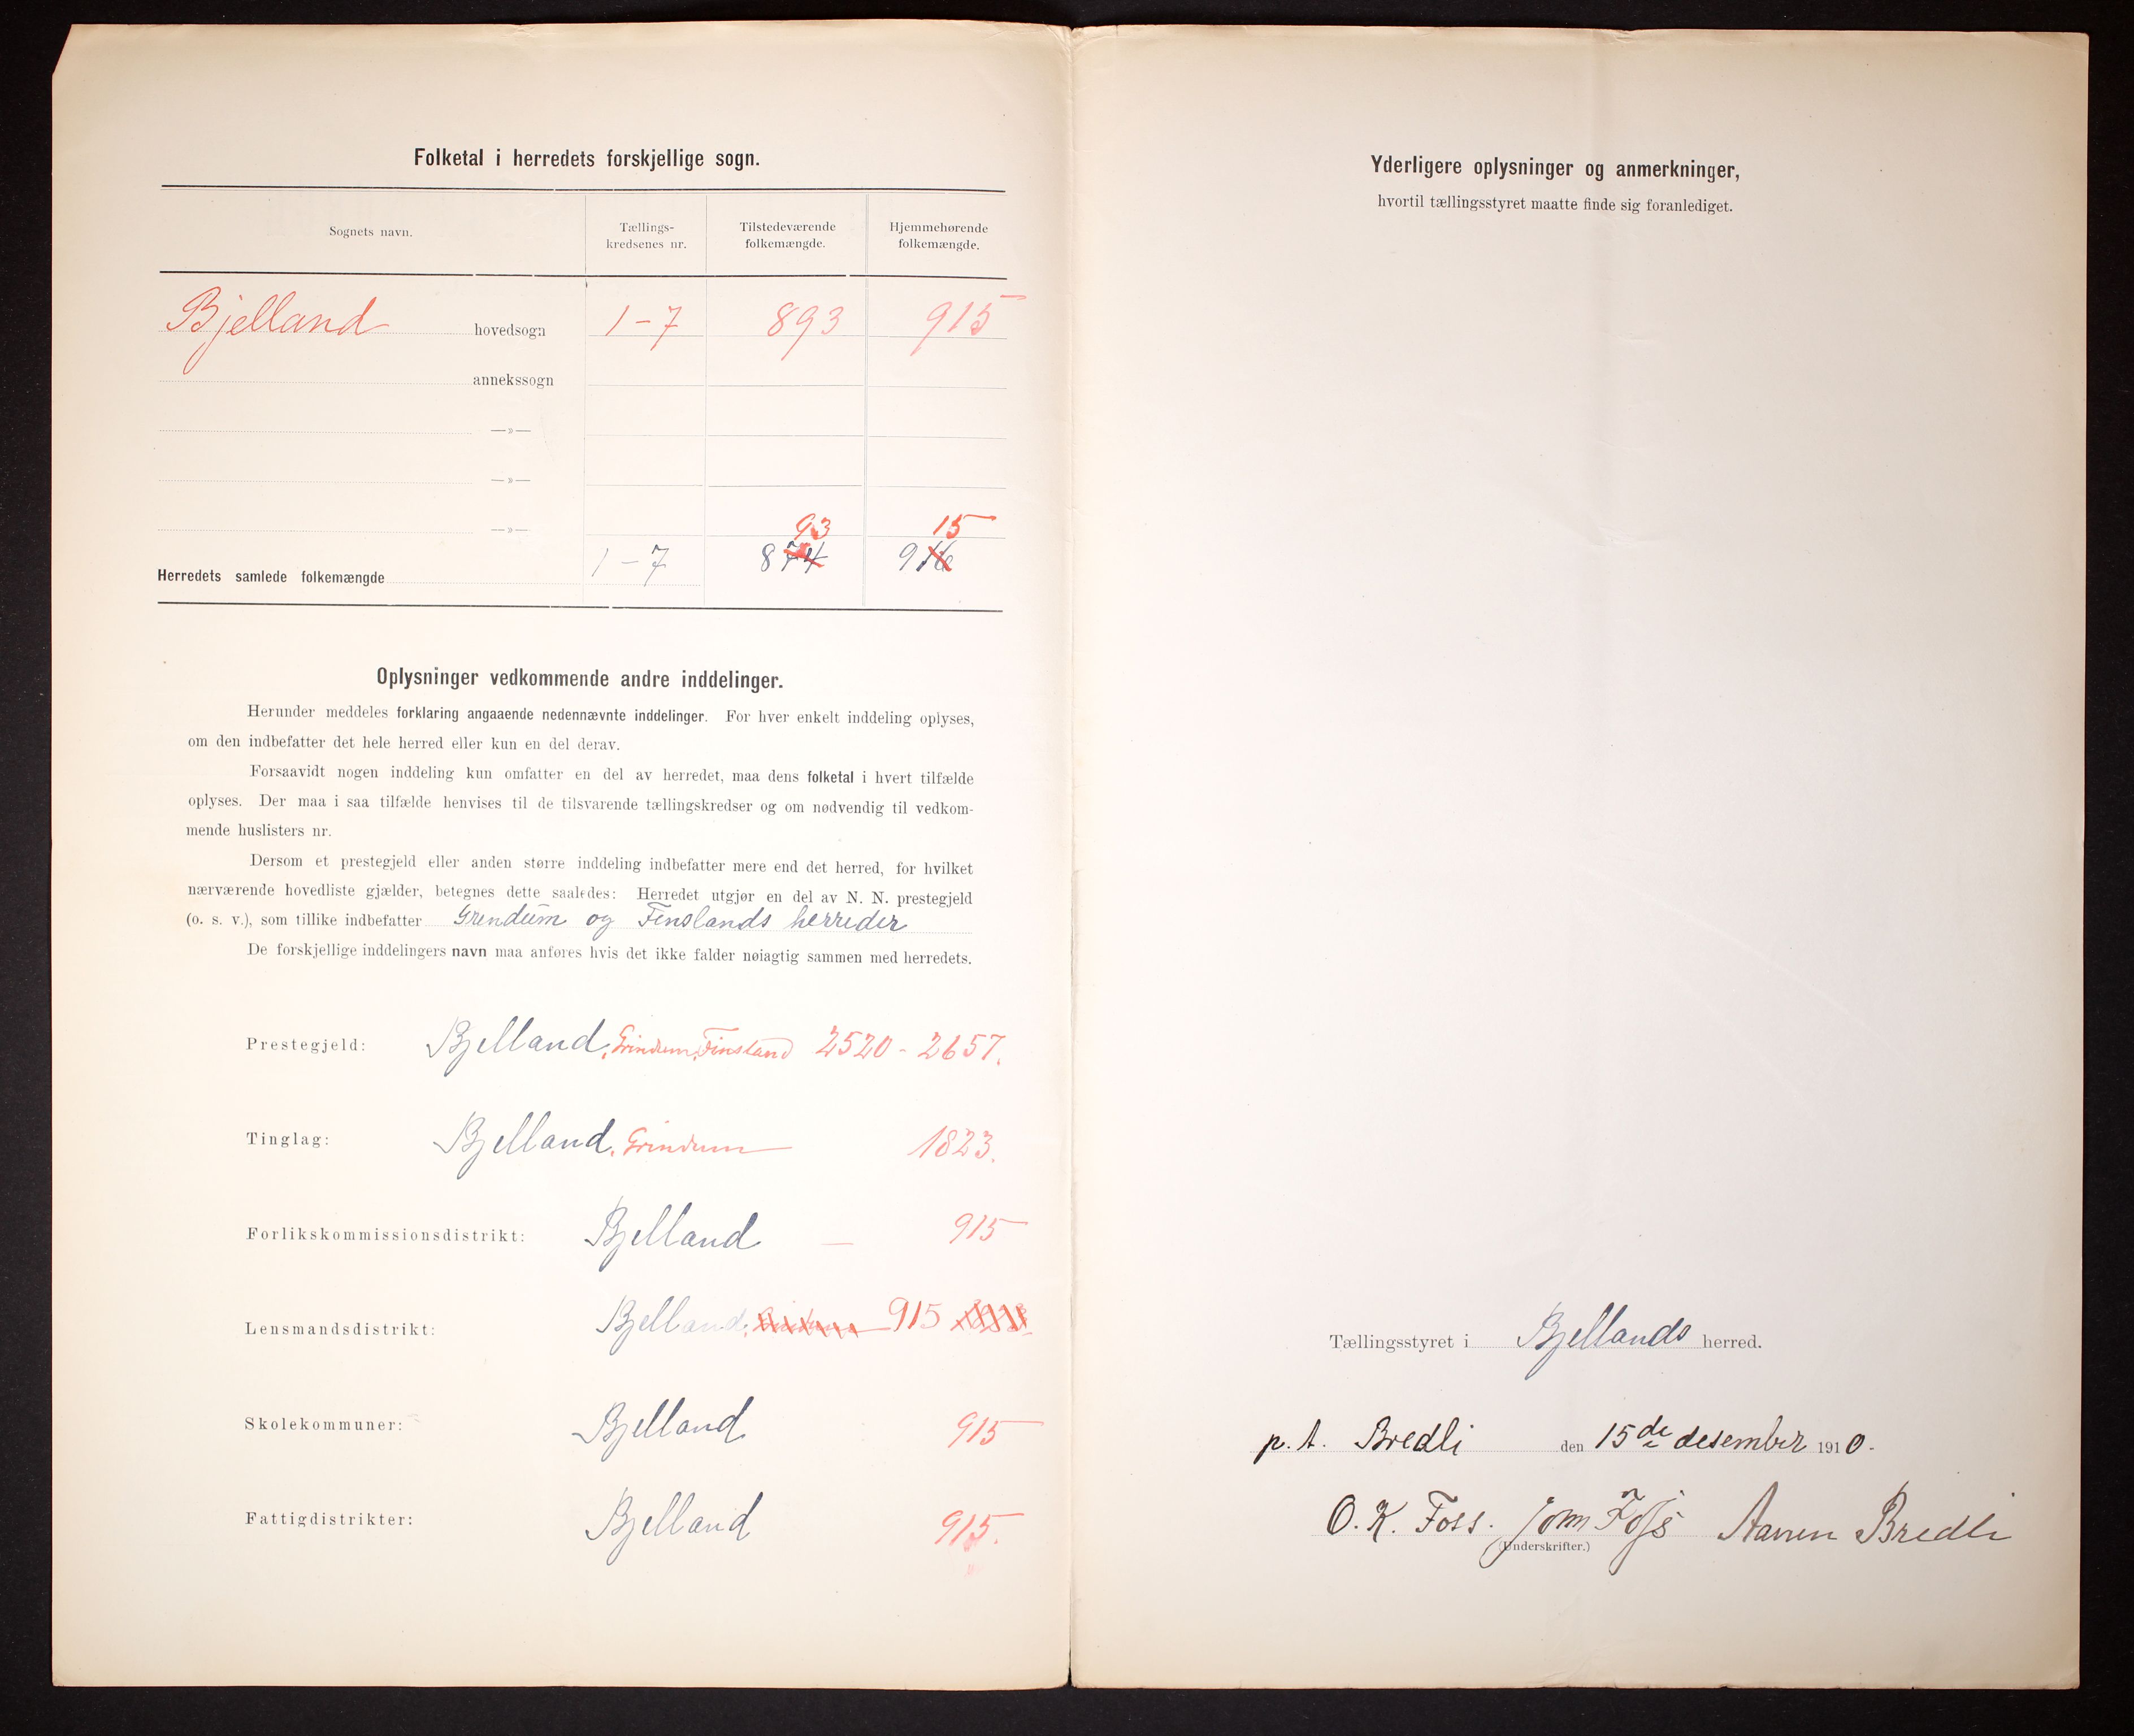 Folketal i herredets forskjellige sogn.
Sognets navn.
Tællings-
kredsenes nr.
Tilstedeværende
folkemængde.
Hjemmehørende
folkemængde.
Bjelland hovedsogn 1-7 893 915
annekssogn
—»—
—»—
—»—
93 15
Herredets samlede folkemængde 1-7 874 916
Oplysninger vedkommende andre inddelinger.
Herunder meddeles forklaring angaaende nedennævnte inddelinger. For hver enkelt inddeling oplyses,
om den indbefatter det hele herred eller kun en del derav.
Forsaavidt nogen inddeling kun omfatter en del av herredet, maa dens folketal i hvert tilfælde
oplyses. Der maa i saa tilfælde henvises til de tilsvarende tællingskredser og om nødvendig til vedkom-
mende huslisters nr.
Dersom et prestegjeld eller anden større inddeling indbefatter mere end det herred, for hvilket
nærværende hovedliste gjælder, betegnes dette saaledes: Herredet utgjør en del av N. N. prestegjeld
(o. s. v.), som tillike indbefatter Grendum og Finslands herreder
De forskjellige inddelingers navn maa anføres hvis det ikke falder nøiagtig sammen med herredets.
Prestegjeld: Bjelland, Grindum, Finsland 2520 - 2657.
Tinglag: Bjelland, Grindum 1823.
Forlikskommissionsdistrikt: Bjelland — 915
Lensmandsdistrikt: Bjelland, 915
Skolekommuner: Bjelland 915
Fattigdistrikter: Bjelland 915.
Yderligere oplysninger og anmerkninger,
hvortil tællingsstyret maatte finde sig foranlediget.
Tællingsstyret i Bjellands herred.
p. t. Bredli den 15de desember 1910.
O. K. Foss. Foss Bredli
(Underskrifter.)